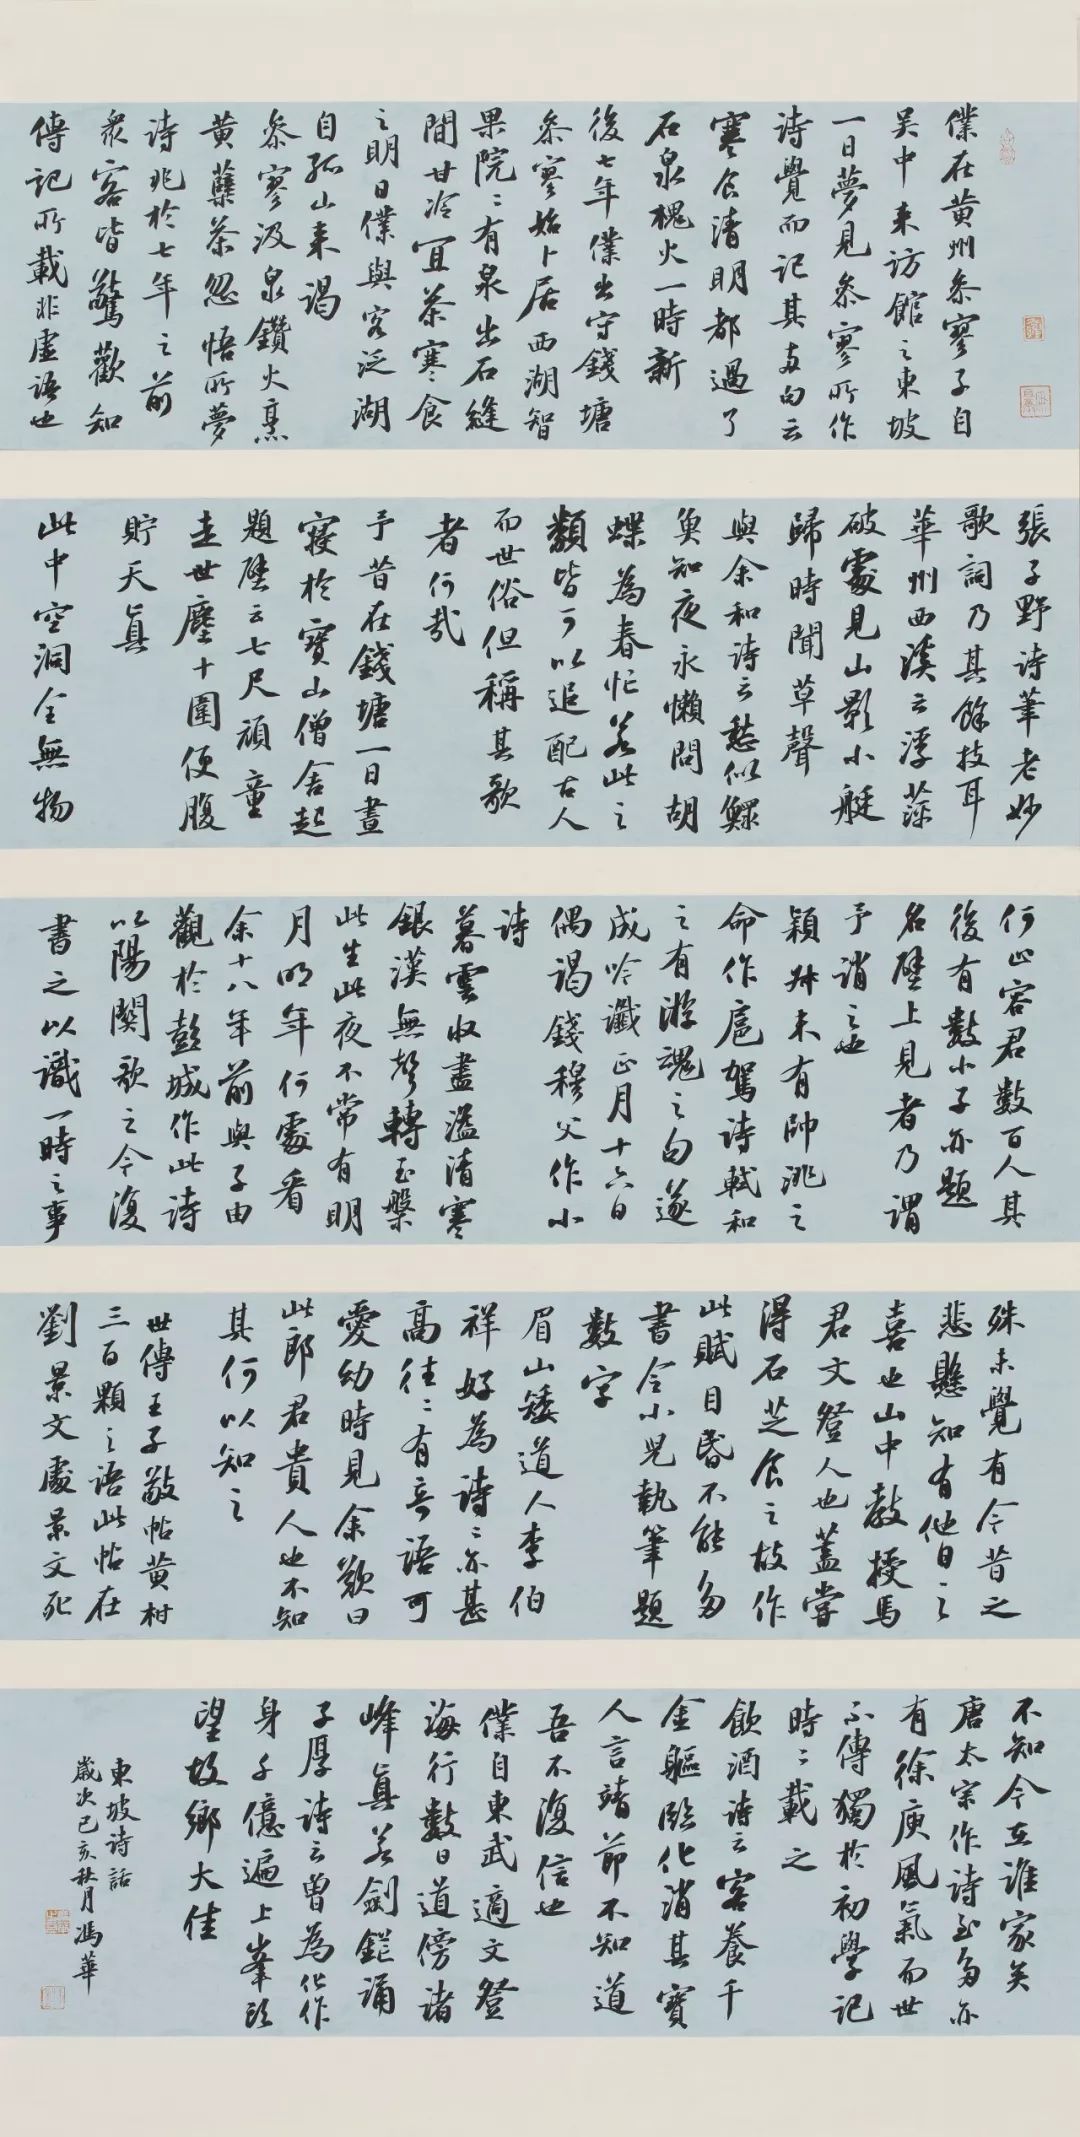 僕在黄州參寥子自
吴中来访館之東坡
一日夢見參寥所作
诗覺而记其两句云
寒食清明都過了
石泉槐火一時新
後七年僕出守錢塘
參寥始卜居西湖智
果院〻有泉出石縫
間甘冷宜茶寒食
之明日僕與客泛湖
自孤山来謁
參寥汲泉鑽火烹
黄蘗茶忽悟所夢
诗兆於七年之前
衆客皆驚歎知
傳记所載非虛语也
張子野诗筆老妙
歌詞乃其餘技耳
華州西溪云浮萍
破處見山影小艇
歸時聞草聲
與余和诗云愁似鰥
魚知夜永懒問胡
蝶為春忙若此之
類皆可以追配古人
而世俗但稱其歌
者何哉
予昔在錢塘一日晝
寝於寶山僧舍起
題壁云七尺頑童
走世塵十圍便腹
貯天真
此中空洞全無物
何止容君数百人其
後有数小子亦題
名壁上見者乃謂
予诮之也
穎叔未有帥洮之
命作扈駕诗軾和
之有游魂之句遂
成吟讖正月十六日
偶謁錢穆父作小
诗
暮雲收盡溢清寒
銀漢無聲轉玉槃
此生此夜不常有明
月明年何處看
余十八年前與子由
觀於彭城作此诗
以陽關歌之今復
書之以識一時之事
殊未覺有今昔之
悲懸知有他日之
喜也山中教授馬
君文登人也蓋嘗
得石芝食之故作
此賦目昏不能多
書令小兒執筆題
数字
眉山矮道人李伯
祥好為诗〻亦甚
高往〻有奇语可
愛幼時見余歎曰
此郎君貴人也不知
其何以知之
世傳王子敬帖黄柑
三百顆之语此帖在
劉景文處景文死
不知今在誰家矣
唐太宗作诗至多亦
有徐庾風氣而世
不傳獨於初學记
時〻載之
飲酒诗云客養千
金軀臨化消其寶
人言靖節不知道
吾不復信也
僕自東武適文登
海行数日道傍诸
峰真若劍鋩诵
子厚诗云曾為化作
身千億遍上峯頭
望故鄉大佳
東坡诗話
歲次己亥秋月馮華